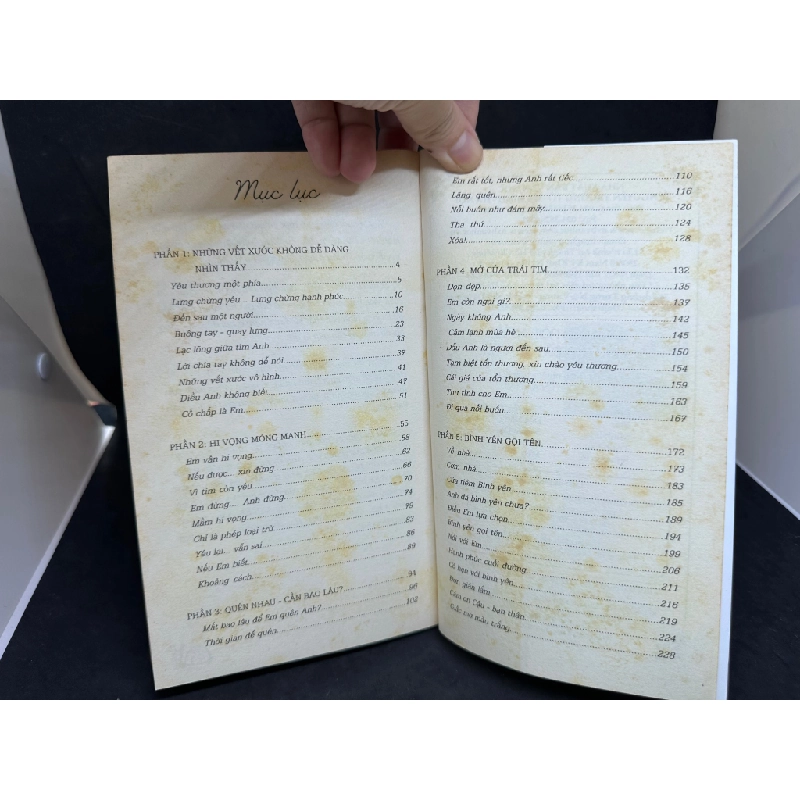 Mục lục
PHẦN 1: NHỮNG VẾT XƯỚC KHÔNG DỄ DÀNG
NHÌN THẤY 4
Yêu thương một phía 5
Lưng chừng yêu - Lưng chừng hạnh phúc 10
Đến sau một người 16
Buông tay - quay lưng 23
Lạc lõng giữa tim Anh 33
Lời chia tay không dễ nói 39
Những vết xước vô hình 41
Điều Anh không biết 47
Cố chấp là Em 51
PHẦN 2: HI VỌNG MỎNG MANH 55
Em vẫn hi vọng 58
Nếu được... xin đừng 62
Vì tim còn yêu 66
Em đừng - Anh đừng 70
Mầm hi vọng 74
Chỉ là phép loại trừ
Yêu lại... vẫn sai 82
Nếu Em biết 86
Khoảng cách 89
PHẦN 3: QUÊN NHAU - CẦN BAO LÂU? 94
Mất bao lâu để Em quên Anh? 96
Thời gian để quên 102
Em rất tốt, nhưng Anh rất tiếc 110
Lãng quên 116
Nỗi buồn như đám mây 120
Tha thứ 124
Xóa! 128
PHẦN 4: MỞ CỬA TRÁI TIM 132
Dọn dẹp 135
Em còn nghĩ gì? 137
Ngày không Anh 142
Cảm lạnh mùa hè 145
Dẫu Anh là người đến sau 150
Tạm biệt tổn thương, xin chào yêu thương 154
Cái giá của tổn thương 159
Tạm tình cho Em 163
Đi qua nỗi buồn 167
PHẦN 5: BÌNH YÊN GỌI TÊN 172
Về nhà 173
Con, nhà 183
Cửa tiệm Bình yên 185
Anh đã bình yên chưa? 189
Điều Em lựa chọn 194
Bình yên gọi tên 199
Nói với Em 206
Hạnh phúc cuối đường 211
Có hẹn với bình yên 215
219
Cảm ơn Cậu - bạn thân 224
228